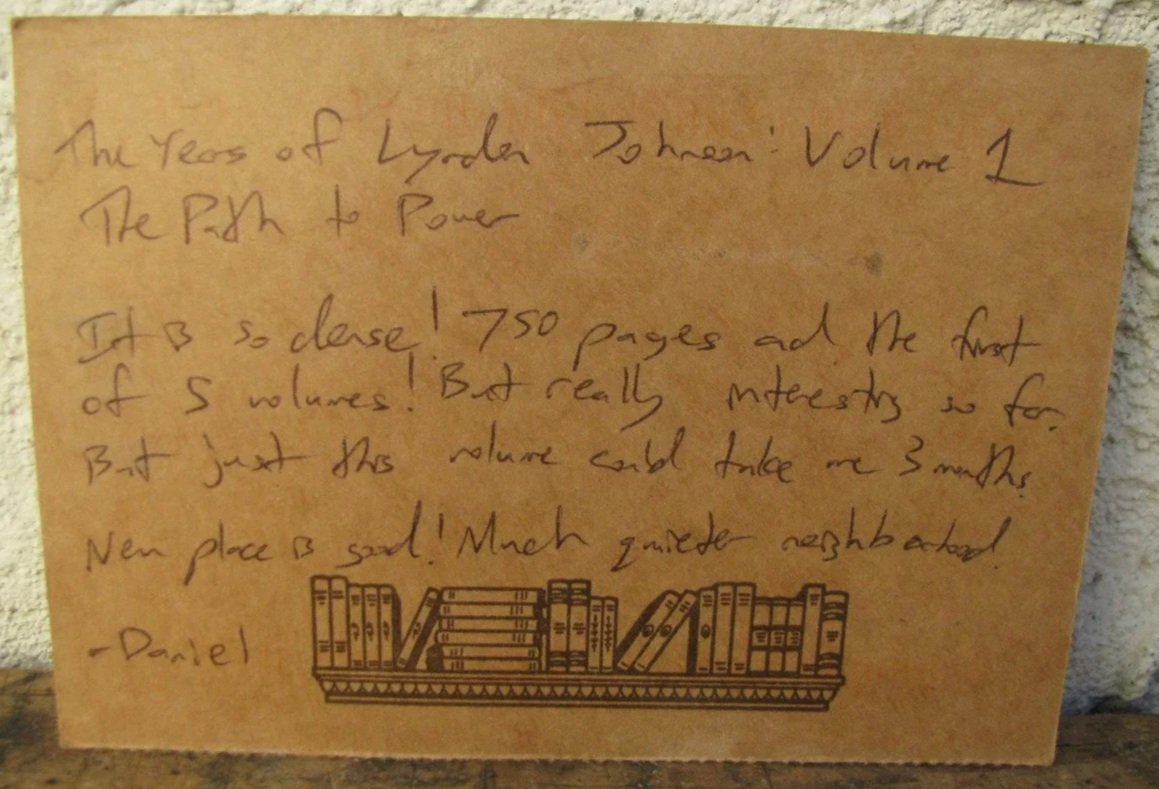 The Years of Lyndon Johnson: Volume 1
The Path to Power
It is so dense! 750 pages and the first
of 5 volumes! But really interesting so far.
But just this volume could take me 3 months.
New place is good! Much quieter neighborhood.
-Daniel